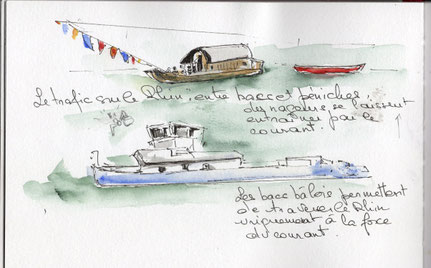 Le trafic sur le Rhin, entre bacs et péniches,
des nageurs se laissent
entraîner par le
courant.
Les bacs bâlois permettent
de traverser le Rhin
uniquement à la force
du courant.